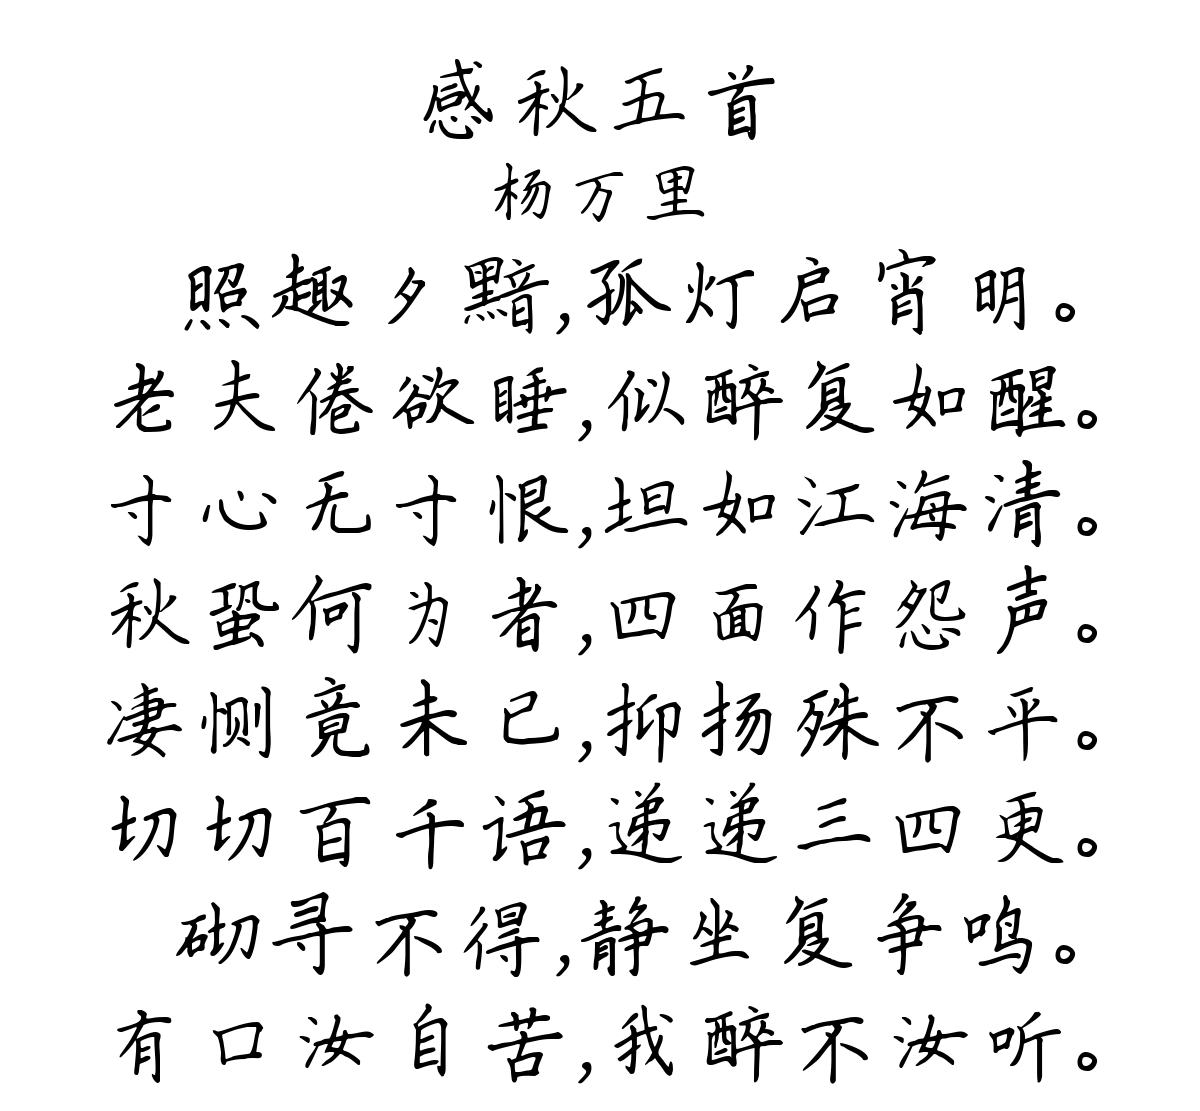 感秋五首
杨万里
照趣夕黯,孤灯启宵明。
老夫倦欲睡,似醉复如醒。
寸心无寸恨,坦如江海清。
秋蛩何为者,四面作怨声。
凄恻竟未已,抑扬殊不平。
切切百千语,递递三四更。
砌寻不得,静坐复争鸣。
有口汝自苦,我醉不汝听。